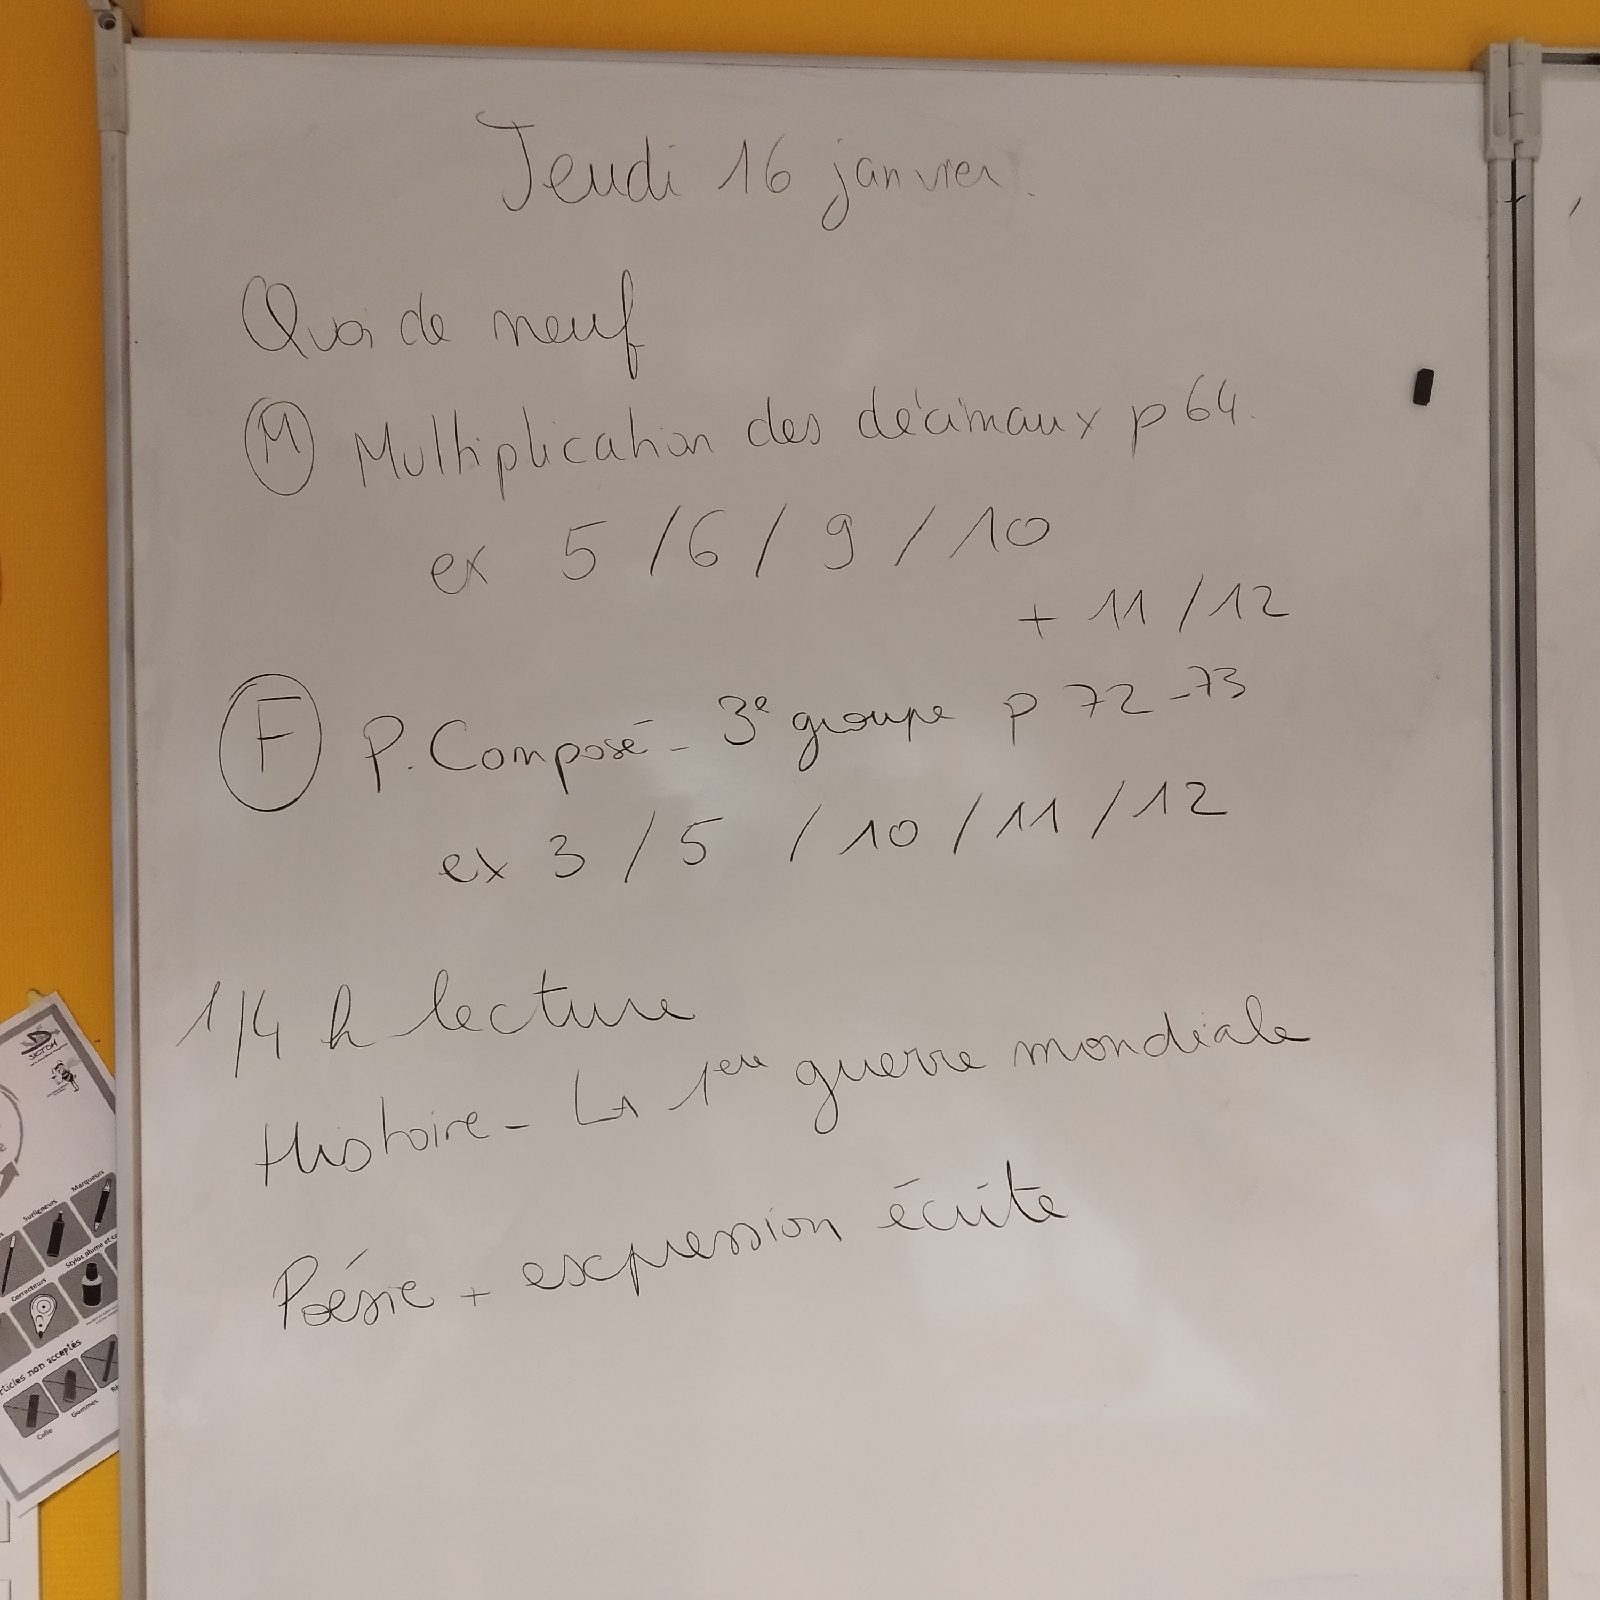 Jeudi 16 janvier.
Quoi de neuf
M Multiplication des décimaux p 64.
ex 5 / 6 / 9 / 10
+ 11 / 12
F P. Composé - 3e groupe p 72-73
ex 3 / 5 / 10 / 11 / 12
1/4 h lecture
Histoire - La 1ère guerre mondiale
Poésie + expression écrite
SICTOM
Marqueurs
Surligneurs
Stylos plume et
Correcteurs
rticles non acceptés
Gommes
Colle